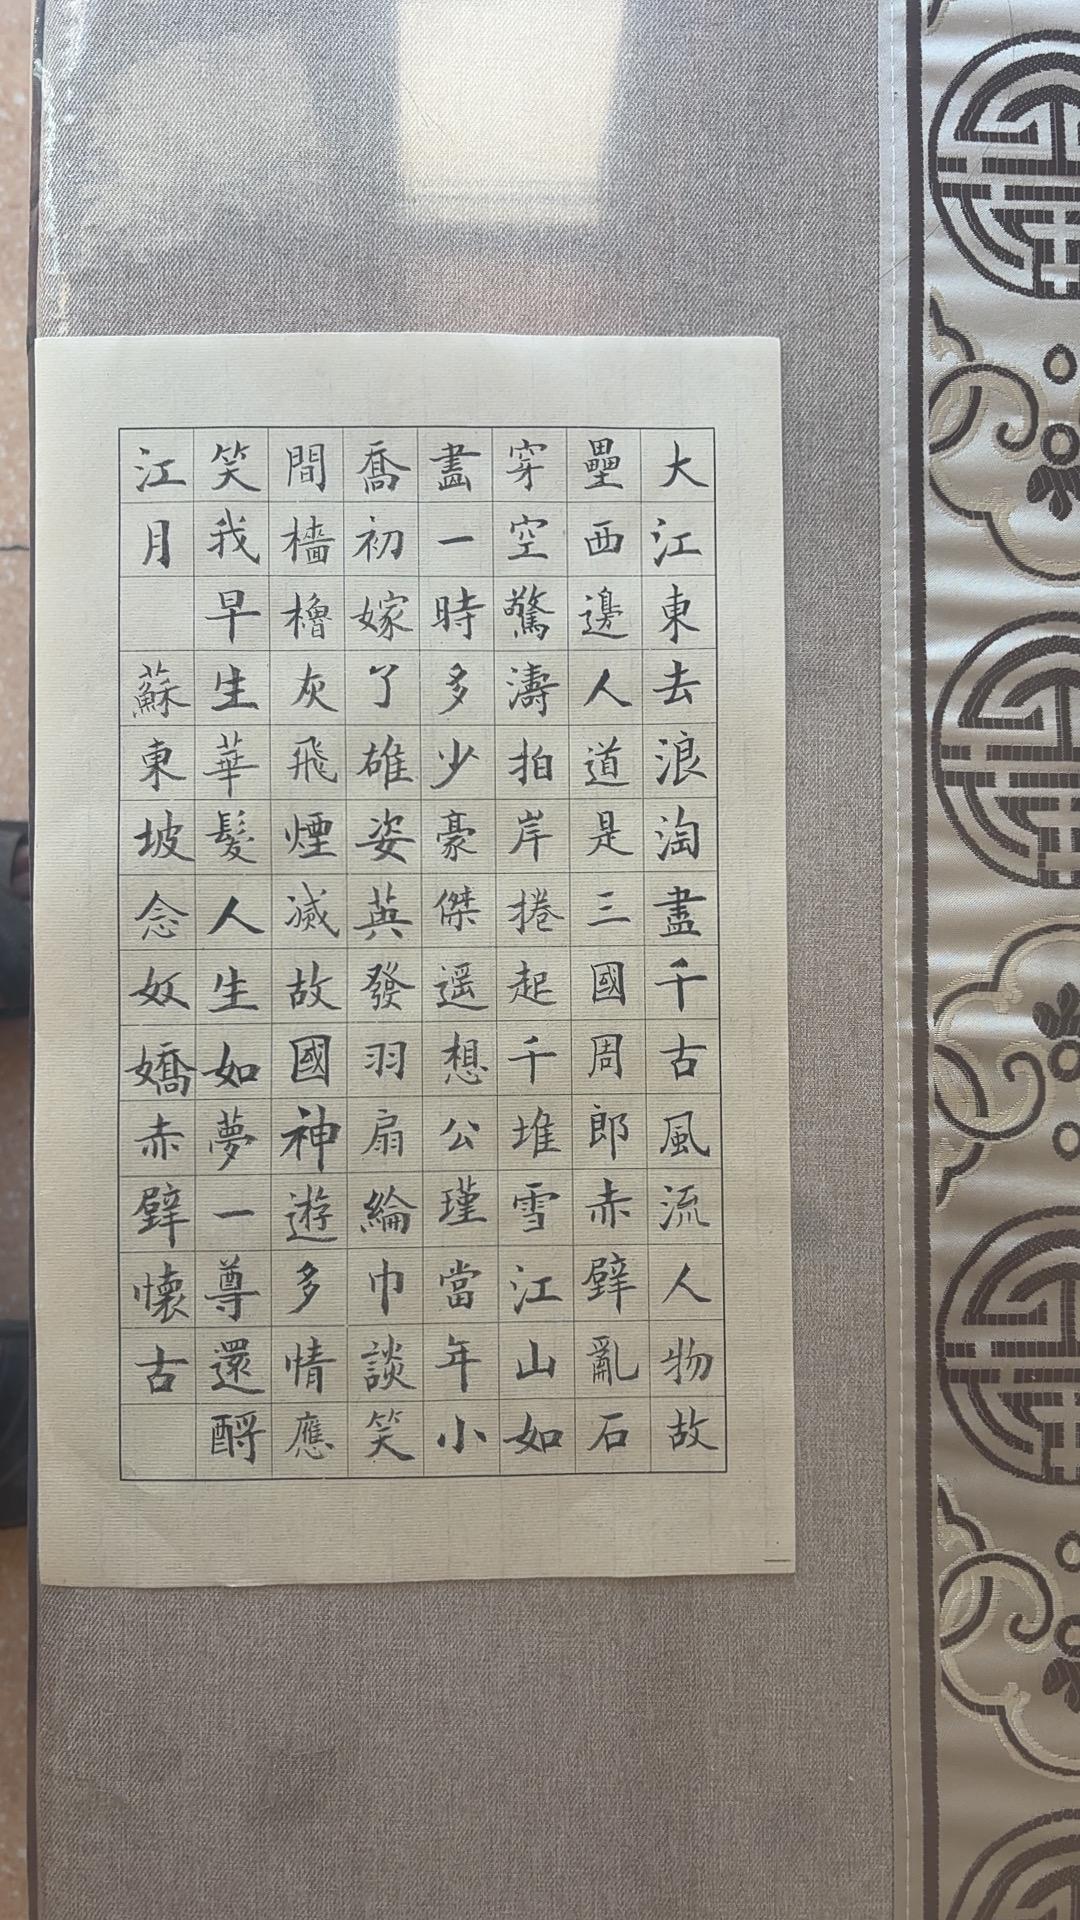 大江東去浪淘盡千古風流人物故
壘西邊人道是三國周郎赤壁亂石
穿空驚濤拍岸捲起千堆雪江山如
畫一時多少豪傑遥想公瑾當年小
喬初嫁了雄姿英發羽扇綸巾談笑
間檣櫓灰飛煙滅故國神遊多情應
笑我早生華髮人生如夢一尊還酹
江月 蘇東坡念奴嬌赤壁懷古